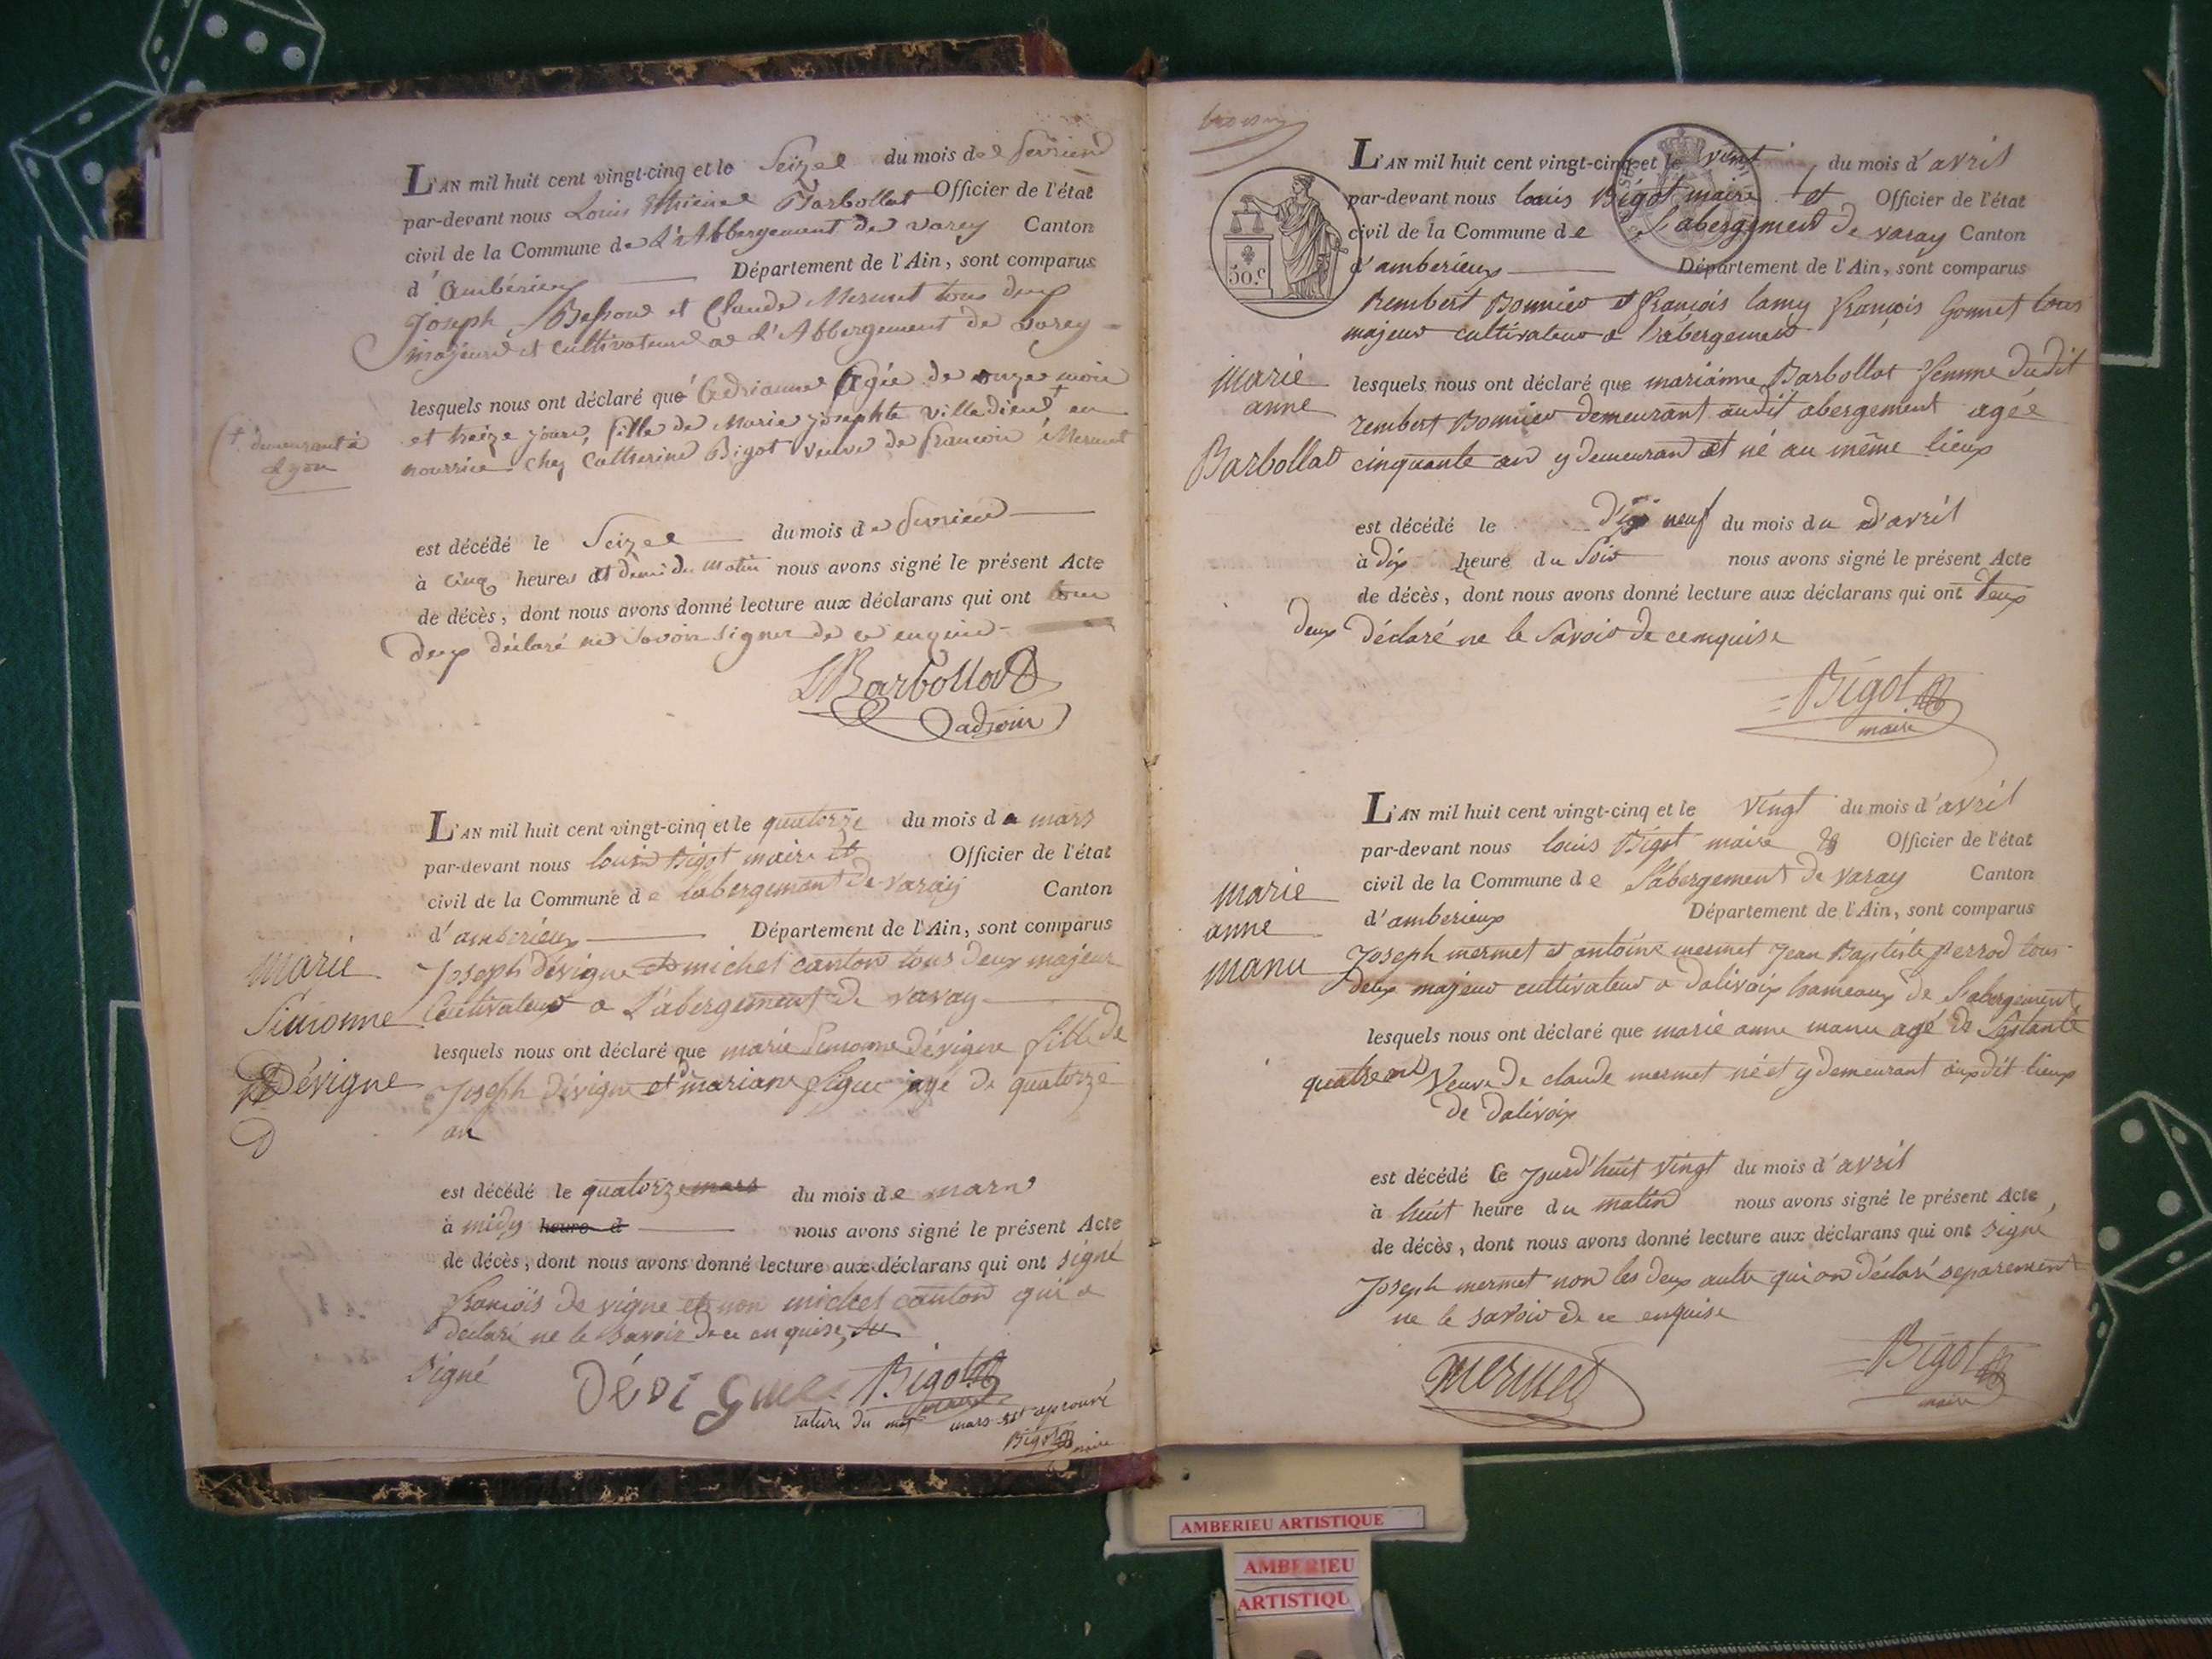 L'AN mil huit cent vingt-cinq et le Seize du mois de fevrier
par-devant nous Louis Barbollat Officier de l'état
civil de la Commune de L'Abbergement de varey Canton
d'Ambérieux Département de l'Ain, sont comparus
Joseph et Claude Mermet tous deux
majeurs et cultivateurs a L'Abbergement de Varey
lesquels nous ont déclaré que Agée de onze mois
et treize jours, fille de Marie josephte villedieu + en
+ demeurant à
Lyon
nourrice chez Catherine Bigot veuve de francois Mermet
est décédé le Seize du mois de fevrier
à cinq heures et demi du matin nous avons signé le présent Acte
de décès, dont nous avons donné lecture aux déclarans qui ont tous
deux déclaré ne Savoir signer de ce enquis
LBarbollat
adjoin
L'AN mil huit cent vingt-cinq et le quatorze du mois de mars
par-devant nous louis Bigot maire et Officier de l'état
civil de la Commune de labergement de varay Canton
d'amberieux Département de l'Ain, sont comparus
marie
Simonne
Dévigne
Joseph dévigne et michel canton tous deux majeur
Cultivateur a L'abergement de varay
lesquels nous ont déclaré que marie Simonne dévigne fille de
Joseph dévigne et mariane agé de quatorze
an
est décédé le quatorze mars du mois de mars
à midy heure d nous avons signé le présent Acte
de décès, dont nous avons donné lecture aux déclarans qui ont signé
françois de vigne et non michel canton qui a
declaré ne le savoir de ce enquise
signé
Dévigne Bigot
maire
rature du mot mars est aprouvé
Bigot maire
L'AN mil huit cent vingt-cinq et le vingt du mois d'avril
par-devant nous louis Bigot maire et Officier de l'état
civil de la Commune de L'abergement de varay Canton
d'amberieux Département de l'Ain, sont comparus
50.c
Rembert Bonnier et françois lamy françois Gonnet tous
majeur cultivateur a labergement
marie
anne
Barbollat
lesquels nous ont déclaré que marianne Barbollat femme dudit
rembert Bonnier demeurant audit abergement agée
cinquante an y demeurand et né au même lieux
est décédé le dix neuf du mois du d'avril
à dix heure du Soir nous avons signé le présent Acte
de décès, dont nous avons donné lecture aux déclarans qui ont tous
deux déclaré ne le Savoir de cenquise
Bigot
maire
L'AN mil huit cent vingt-cinq et le vingt du mois d'avril
par-devant nous louis Bigot maire Officier de l'état
civil de la Commune de L'abergement de varay Canton
d'amberieux Département de l'Ain, sont comparus
marie
anne
manu
Joseph mermet et antoine mermet Jean Baptiste perrod tous
deux majeur cultivateur a dalivoix hameaux de L'abergement
lesquels nous ont déclaré que marie anne manu agé de Sestante
quatre ans veuve de claude mermet né et y demeurant auxdit lieux
de dalivoix
est décédé ce jourd'huit vingt du mois d'avril
à huit heure du matin nous avons signé le présent Acte
de décès, dont nous avons donné lecture aux déclarans qui ont signé
Joseph mermet non les deux autre qui on déclaré separement
ne le savoir de ce enquise
mermet
Bigot
maire
AMBERIEU ARTISTIQUE
AMBERIEU
ARTISTIQU